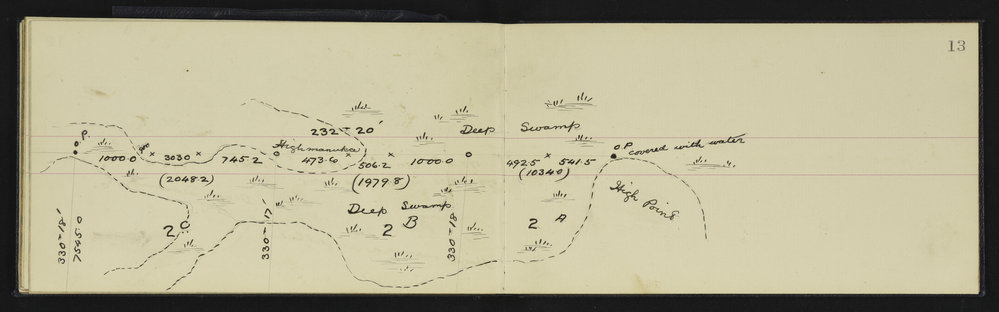 13
232-20'
Deep Swamp
P.
High manuka
O P covered with water
1000.0 × 303.0 × 745.2 473.6 × 506.2 × 1000.0 492.5 × 541.5
(2048.2) (1979.8) (1034.0)
High Point
Deep Swamp
2 C 2 B 2 A
330-18'
7545.0
330-17'
330-18